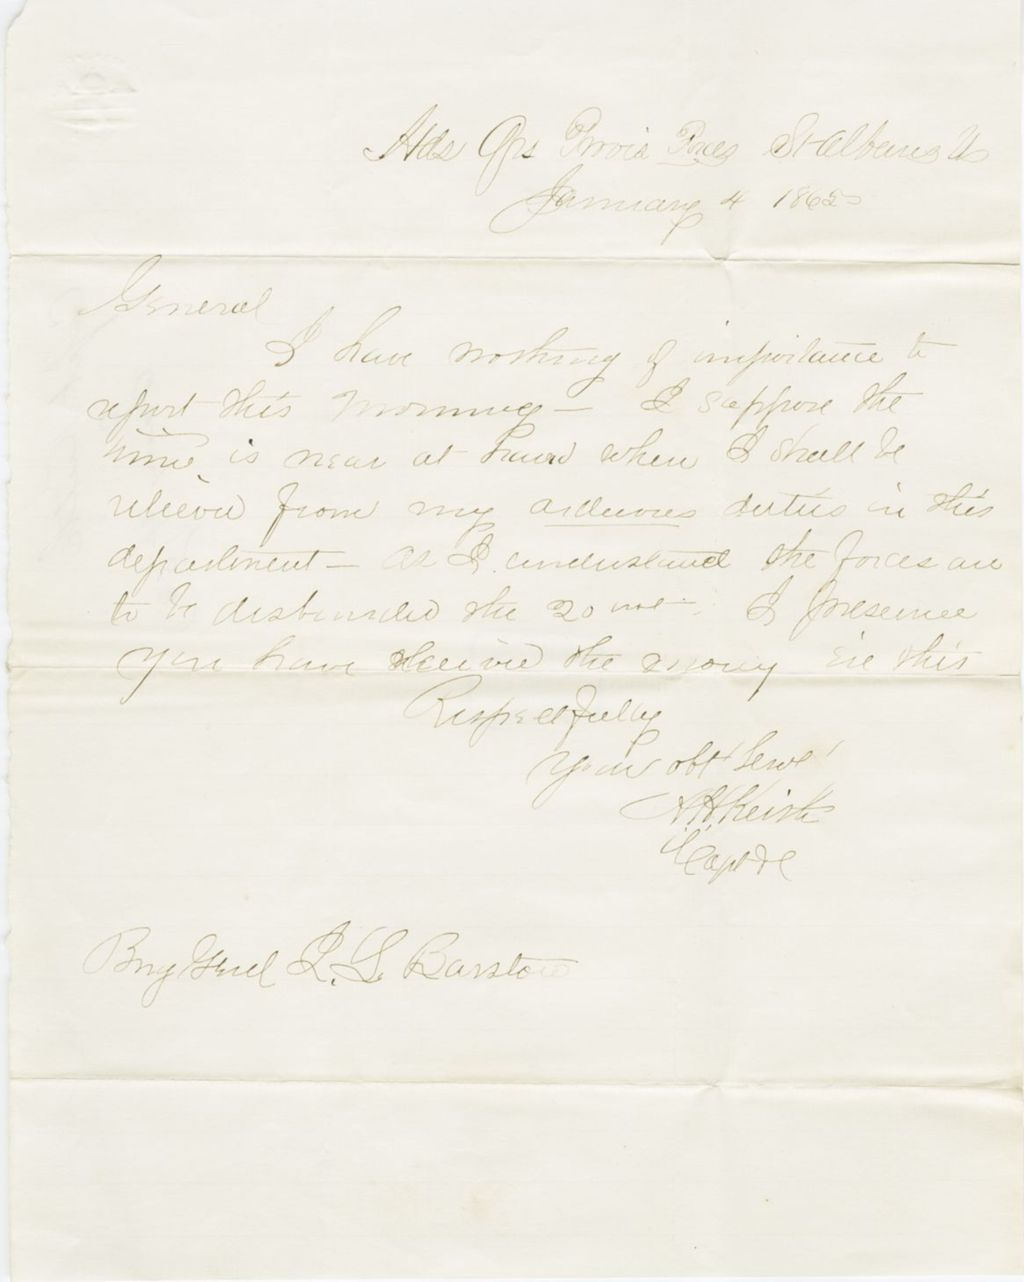 Hds Qrs Provis Forces St Albans Vt
January 4 1865
General
I have nothing of importance to
report this morning – I suppose the
time is near at hand when I shall be
relieved from my arduous duties in this
department – as I understand the forces are
to be disbanded the 20 inst. I presume
you have received the money ere this
Respectfully
Your obt Servt
Keith
Capt &c
Brig Genl Barstow